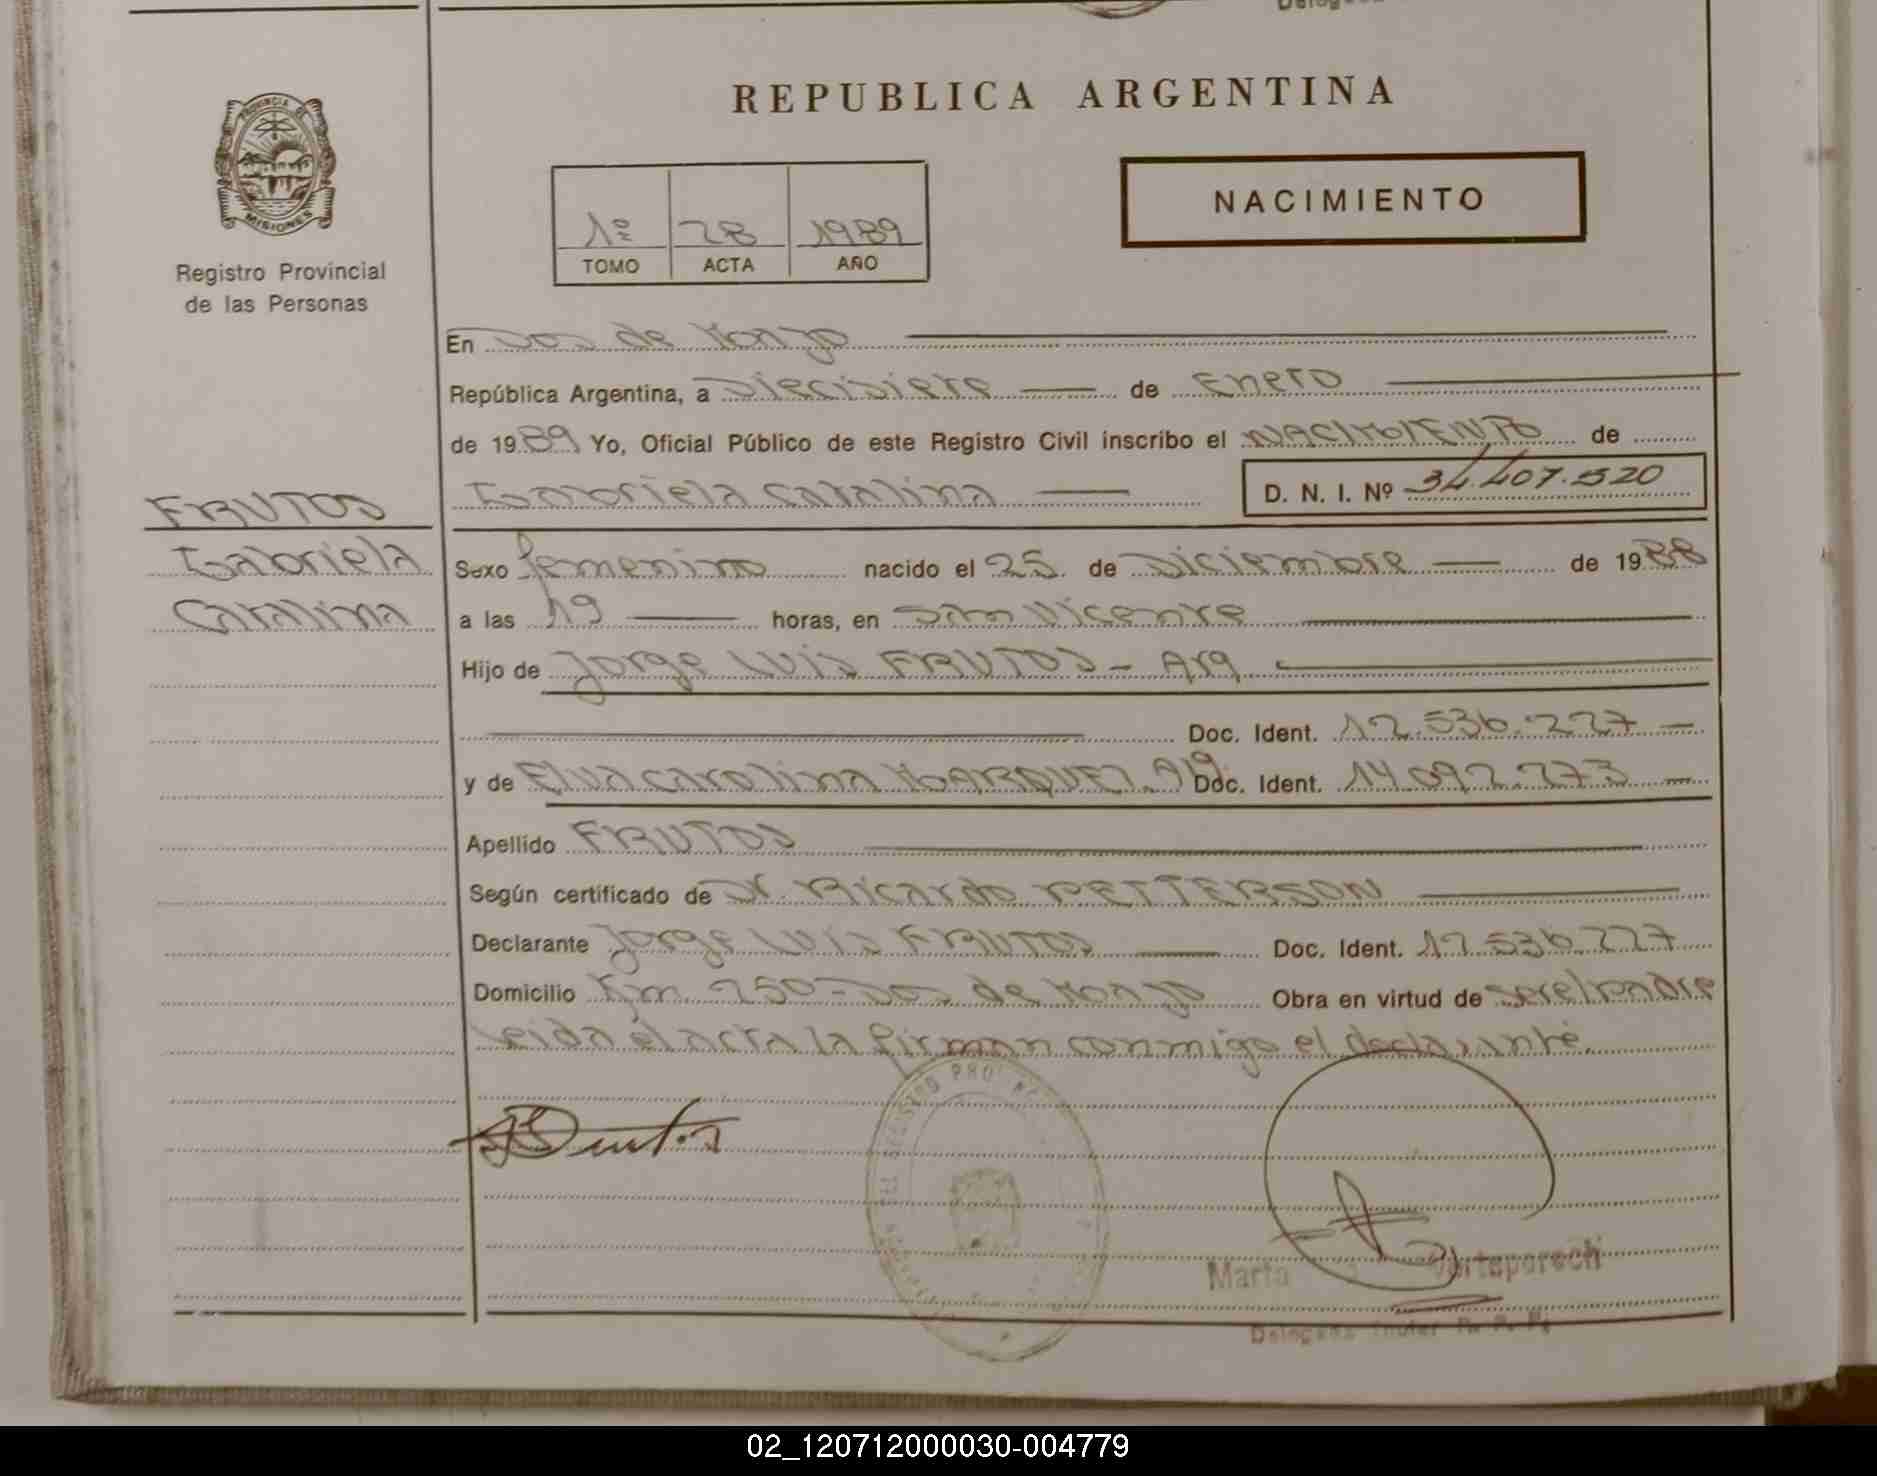 REPUBLICA ARGENTINA
PROVINCIA DE
MISIONES
Registro Provincial
de las Personas
1º 28 1989
TOMO ACTA AÑO
NACIMIENTO
En Dos de Mayo
República Argentina, a Diecisiete de Enero
de 1989 Yo, Oficial Público de este Registro Civil inscribo el NACIMIENTO de
Gabriela Catalina D. N. I. Nº 34.407.520
FRUTOS
Gabriela
Catalina
Sexo femenino nacido el 25 de Diciembre de 1988
a las 19 horas, en San Vicente
Hijo de Jorge Luis FRUTOS - Arg
Doc. Ident. 12.536.227
y de Elva Carolina MARQUEZ. Arg Doc. Ident. 14.092.273
Apellido FRUTOS
Según certificado de Dr. Ricardo PETTERSON
Declarante Jorge Luis FRUTOS Doc. Ident. 12.536.227
Domicilio Km 250 - Dos de Mayo Obra en virtud de ser el padre
leida el acta la firman conmigo el declarante
Marta